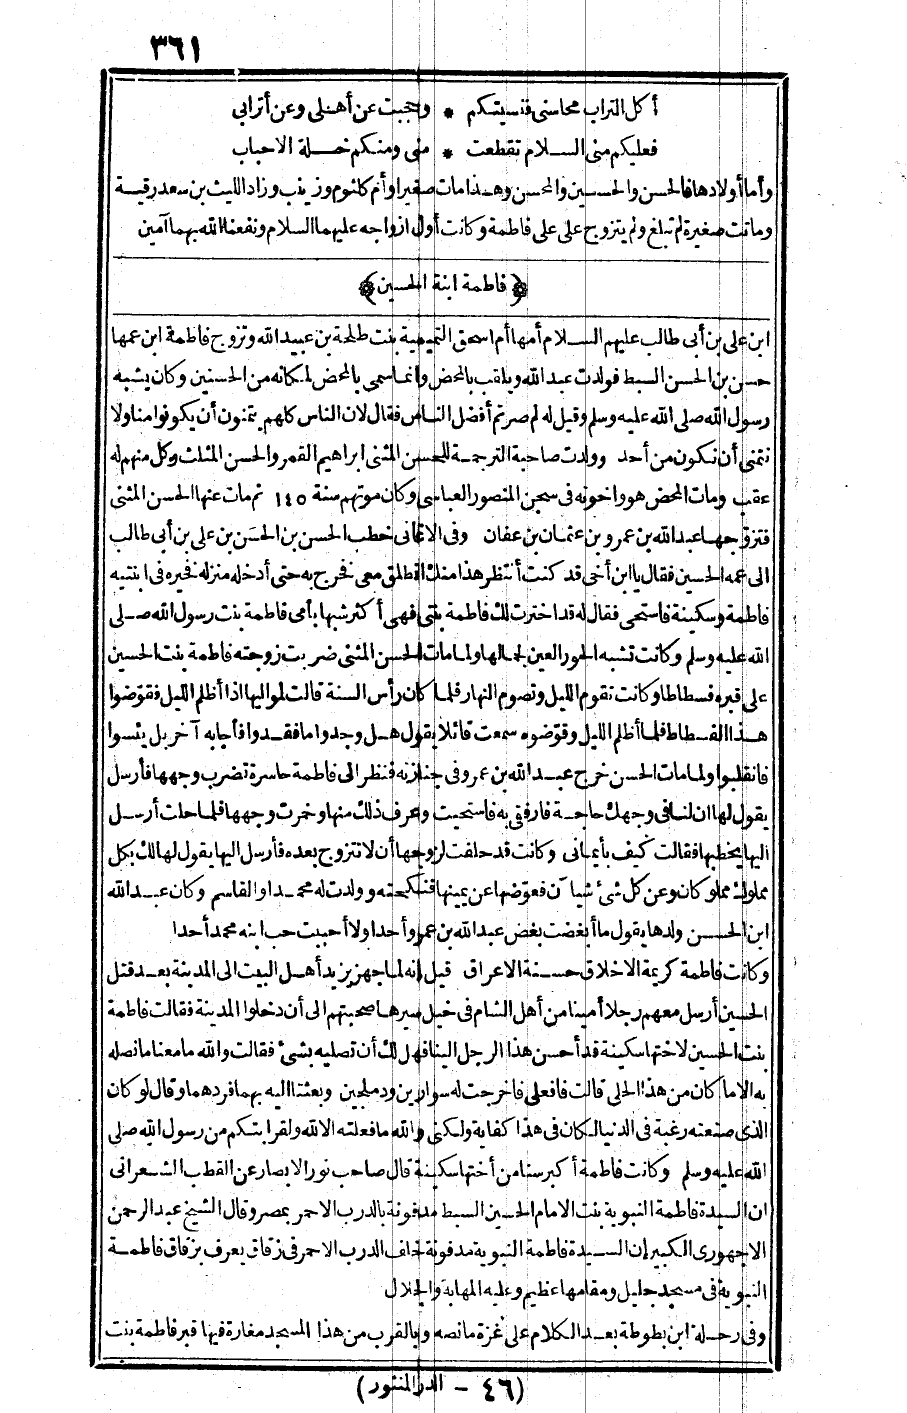 ٣٦١
أكل التراب محاسنى فنسيتكم * وحجبت عن أهلى وعن أترابي
فعليكم منى السلام تقطعت * منى ومنكم خلة الاحباب
وأما أولادها فالحسن والحسين والمحسن وهذا مات صغيرا وأم كلثوم وزينب وزاد الليث بن سعد رقية
وماتت صغيرة لم تبلغ ولم يتزوج على على فاطمة وكانت أول ازواجه عليهما السلام ونفعنا الله بهما آمين
﴿فاطمة ابنة الحسين﴾
ابن على بن أبى طالب عليهم السلام أمها أم اسحق التيمية بنت طلحة بن عبيد الله وتزوج فاطمة ابن عمها
حسن بن الحسن السبط فولدت عبد الله ويلقب بالمحض وانما سمى بالمحض لمكانه من الحسنين وكان يشبه
رسول الله صلى الله عليه وسلم وقيل له لم صرتم أفضل الناس فقال لان الناس كلهم يتمنون أن يكونوا منا ولا
نتمنى أن نكون من أحد وولدت صاحبة الترجمة للحسن المثنى ابراهيم القمر والحسن المثلث وكل منهم له
عقب ومات المحض هو واخوته فى سجن المنصور العباسى وكان موتهم سنة ١٤٥ ثم مات عنها الحسن المثنى
فتزوجها عبد الله بن عمرو بن عثمان بن عفان وفى الاغانى خطب الحسن بن الحسن بن على بن أبى طالب
الى عمه الحسين فقال يا ابن أخى قد كنت أنتظر هذا منك انطلق معى فخرج به حتى أدخله منزله فخيره فى ابنتيه
فاطمة وسكينة فاستحى فقال له قد اخترت لك فاطمة بنتى فهى أكثر شبها بأمى فاطمة بنت رسول الله صلى
الله عليه وسلم وكانت تشبه الحور العين لجمالها ولما مات الحسن المثنى ضربت زوجته فاطمة بنت الحسين
على قبره فسطاطا وكانت تقوم الليل وتصوم النهار فلما كان رأس السنة قالت لمواليها اذا أظلم الليل فقوضوا
هذا الفسطاط فلما أظلم الليل وقوضوه سمعت قائلا يقول هل وجدوا ما فقدوا فأجابه آخر بل يئسوا
فانقلبوا ولما مات الحسن خرج عبد الله بن عمرو فى جنازته فنظر الى فاطمة حاسرة تضرب وجهها فأرسل
يقول لها ان لنا فى وجهك حاجة فارفقى به فاستحيت وعرف ذلك منها وخمرت وجهها فلما حلت أرسل
اليها يخطبها فقالت كيف بأيمانى وكانت قد حلفت لزوجها أن لا تتزوج بعده فأرسل اليها يقول لها لك بكل
مملوك مملوكان وعن كل شئ شيآن فعوضها عن يمينها فنكحته وولدت له محمدا والقاسم وكان عبد الله
ابن الحسن ولدها يقول ما أبغضت بغض عبد الله بن عمرو أحدا ولا أحببت حب ابنه محمد أحدا
وكانت فاطمة كريمة الاخلاق حسنة الاعراق قيل انه لما جهز يزيد أهل البيت الى المدينة بعد قتل
الحسين أرسل معهم رجلا أمينا من أهل الشام فى خيل سيرها صحبتهم الى أن دخلوا المدينة فقالت فاطمة
بنت الحسين لاختها سكينة قد أحسن هذا الرجل الينا فهل لك أن تصليه بشئ فقالت والله ما معنا ما نصله
به الا ما كان من هذا الحلى قالت فافعلى فاخرجت له سوارين ودملجين وبعثتا اليه بهما فردهما وقال لو كان
الذى صنعته رغبة فى الدنيا لكان فى هذا كفاية ولكنى والله ما فعلته الا لله ولقرابتكم من رسول الله صلى
الله عليه وسلم وكانت فاطمة أكبر سنا من أختها سكينة قال صاحب نور الابصار عن القطب الشعرانى
ان السيدة فاطمة النبوية بنت الامام الحسين السبط مدفونة بالدرب الاحمر بمصر وقال الشيخ عبد الرحمن
الاجهورى الكبير ان السيدة فاطمة النبوية مدفونة خلف الدرب الاحمر فى زقاق يعرف بزقاق فاطمة
النبوية فى مسجد جليل ومقامها عظيم وعليه المهابة والجلال
وفى رحلة ابن بطوطة بعد الكلام على غزة ما نصه وبالقرب من هذا المسجد مغارة فيها قبر فاطمة بنت
(٤٦ - الدر المنثور)